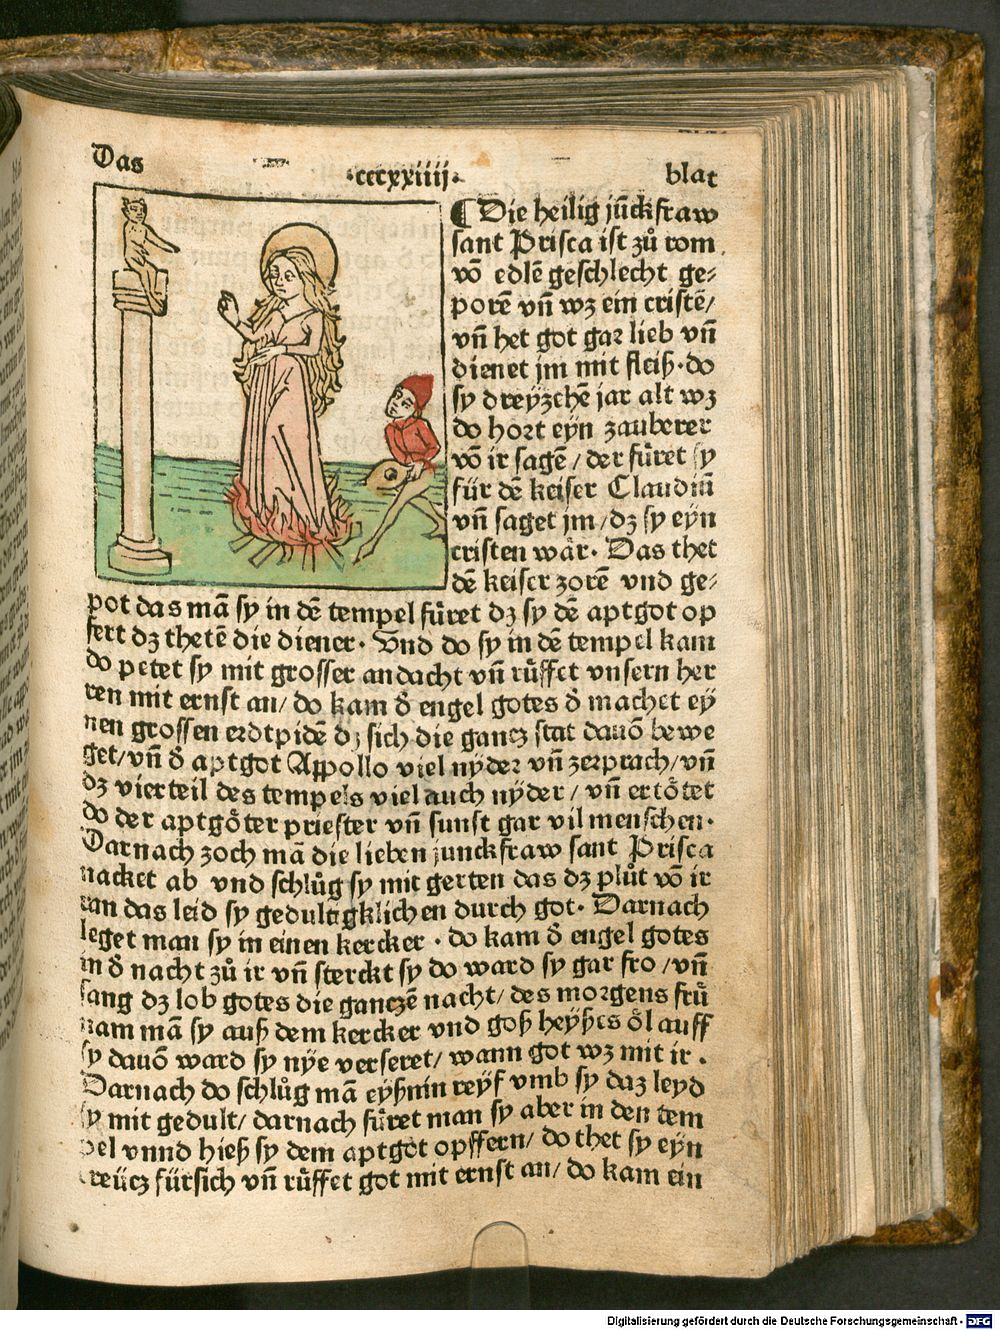 Das ·ccccxxiiij· blat
¶ Die heilig jūckfraw
sant Prisca ist zů rom
võ edlē geschlecht ge⸗
porē vñ wz ein cristē/
vñ het got gar lieb vñ
dienet jm mit fleiß·do
sy dreÿzehē jar alt wz
do hort eÿn zauberer
võ ir sagē/der fůret sy
für dē keiser Claudiū
vñ saget jm/dz sy eÿn
cristen wår· Das thet
dē keiser zorē vnd ge⸗
pot das mā sy in dē tempel fůret dz sy dē aptgot op
fert dz thetē die diener· Vnd do sy in dē tempel kam
do petet sy mit grosser andacht vñ růffet vnsern her
ren mit ernst an/do kam d̄ engel gotes d̄ machet eÿ
nen grossen erdtpidē dz sich die gancz stat dauō bewe
get/vñ d̄ aptgot Appollo viel nÿder vñ zerprach/vñ
dz vierteil des tempels viel auch nÿder/vñ ertötet
do der aptgöter priester vñ sunst gar vil menschen·
Darnach zoch mā die lieben junckfraw sant Prisca
nacket ab vnd schlůg sy mit gerten das dz plůt võ ir
ran das leid sy gedultigklichen durch got· Darnach
leget man sy in einen kercker·do kam d̄ engel gotes
in d̄ nacht zů ir vñ sterckt sy do ward sy gar fro/vñ
sang dz lob gotes die ganczē nacht/des morgens frů
nam mā sy auß dem kercker vnd goß heÿßes öl auff
sy dauō ward sy nÿe verseret/wann got wz mit ir·
Darnach do schlůg mā eÿßnin reÿf vmb sy daz leyd
sy mit gedult/darnach fůret man sy aber in den tem
pel vnnd hieß sy dem aptgot opffern/do thet sy eÿn
creücz fürsich vñ růffet got mit ernst an/do kam ein
Digitalisierung gefördert durch die Deutsche Forschungsgemeinschaft - DFG